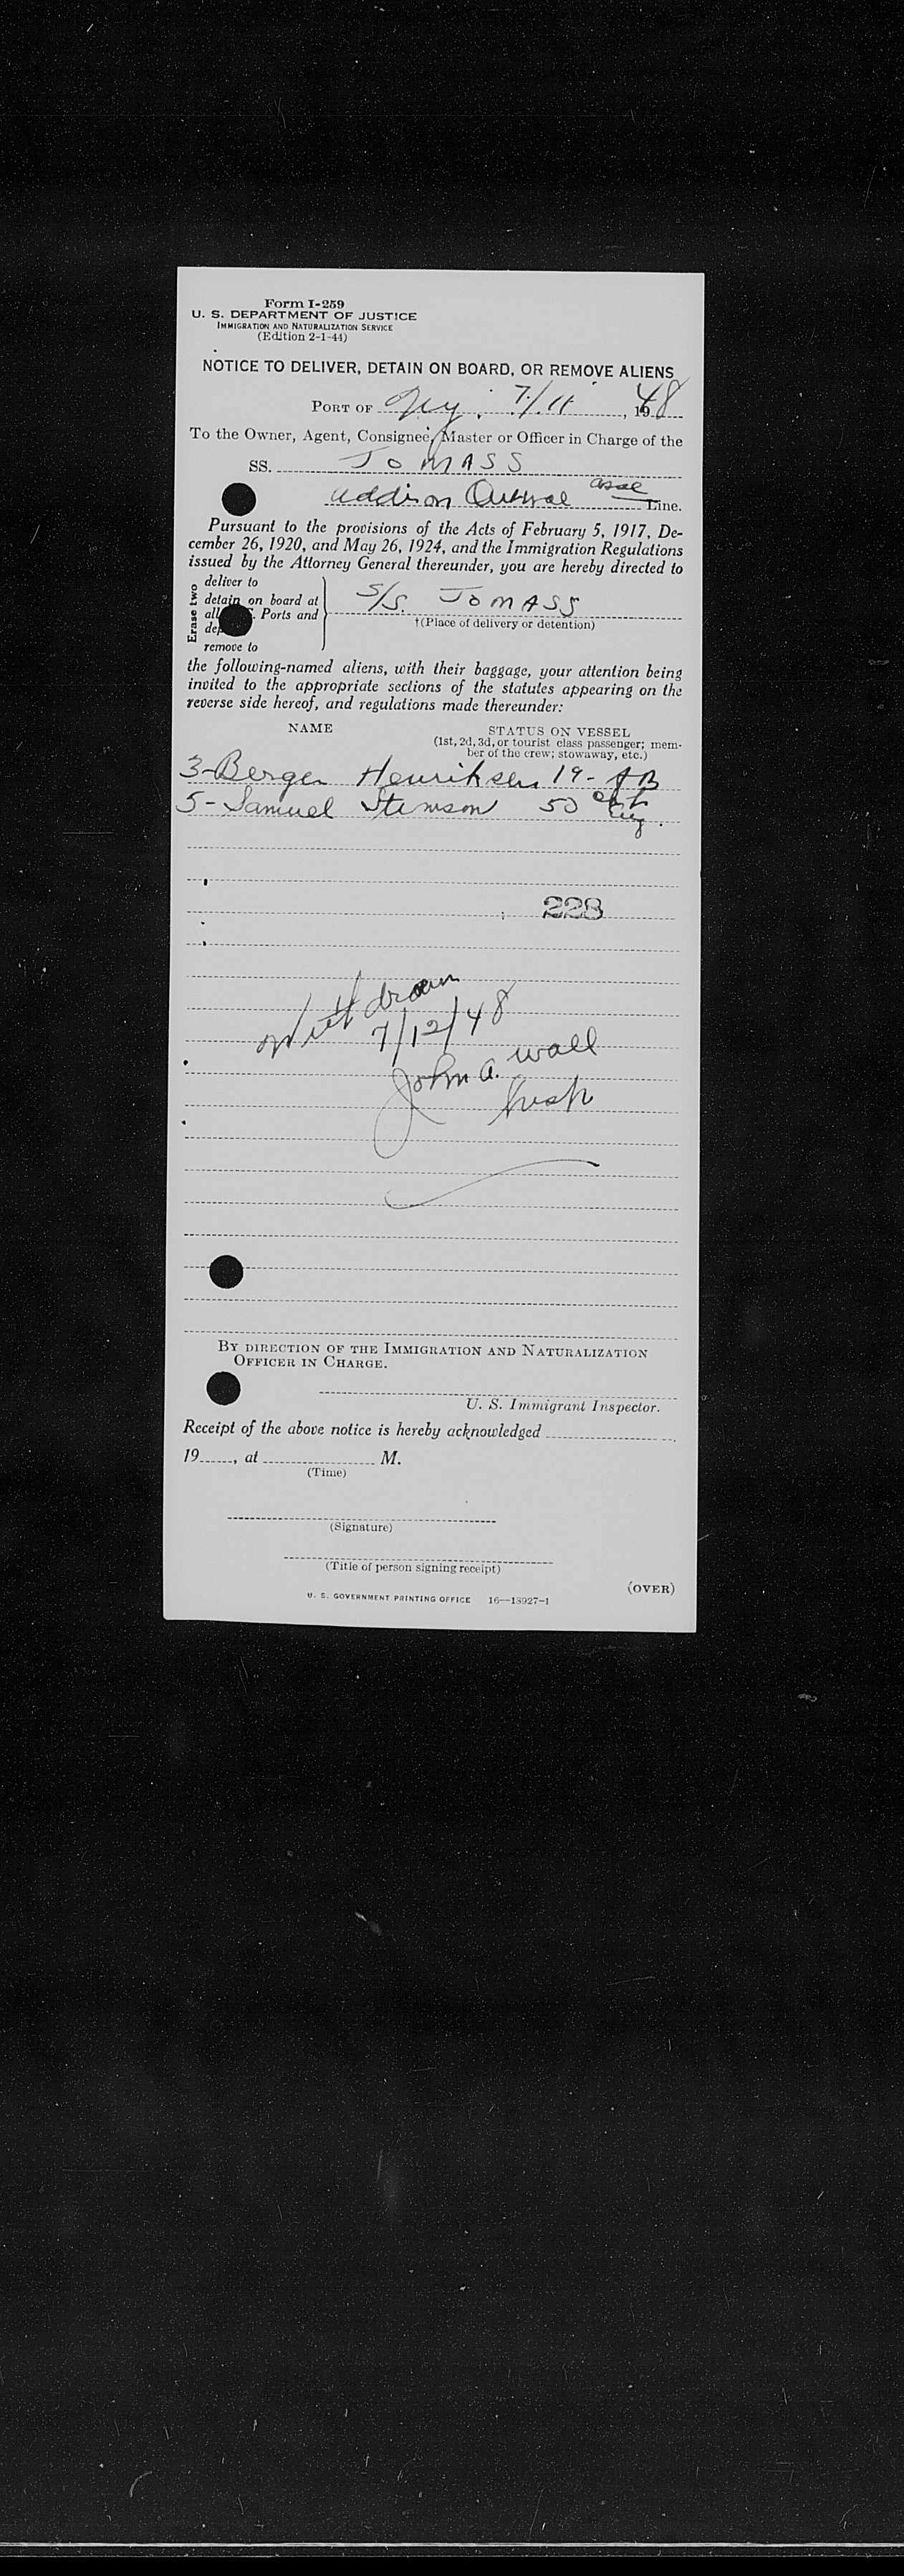 Form I-259
U. S. DEPARTMENT OF JUSTICE
IMMIGRATION AND NATURALIZATION SERVICE
(Edition 2-1-44)
NOTICE TO DELIVER, DETAIN ON BOARD, OR REMOVE ALIENS
PORT OF NY. 7/11, 1948
To the Owner, Agent, Consignee, Master or Officer in Charge of the
SS. JOMASS
Addison Line.
Pursuant to the provisions of the Acts of February 5, 1917, De-
cember 26, 1920, and May 26, 1924, and the Immigration Regulations
issued by the Attorney General thereunder, you are hereby directed to
Erase two
deliver to
detain on board at
all Ports and
remove to
S/S. JOMASS
†(Place of delivery or detention)
the following-named aliens, with their baggage, your attention being
invited to the appropriate sections of the statutes appearing on the
reverse side hereof, and regulations made thereunder:
NAME STATUS ON VESSEL
(1st, 2d, 3d, or tourist class passenger; mem-
ber of the crew; stowaway, etc.)
3-Berger Henriksen 19- AB
5-Samuel Stenson 50
228
Withdrawn
7/12/48
John A. Wall
Insp
BY DIRECTION OF THE IMMIGRATION AND NATURALIZATION
OFFICER IN CHARGE.
U. S. Immigrant Inspector.
Receipt of the above notice is hereby acknowledged
19, at M.
(Time)
(Signature)
(Title of person signing receipt)
(OVER)
U. S. GOVERNMENT PRINTING OFFICE 16—18927-1